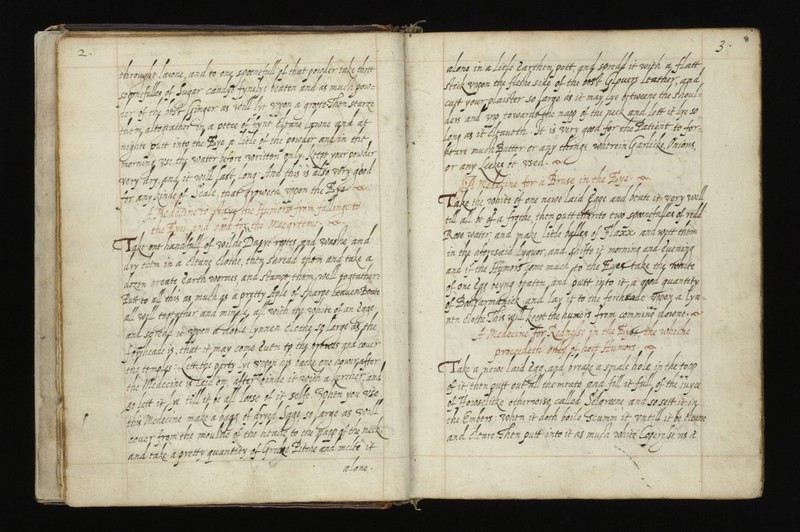 2.
through lawne, and to one spoonefull of that powder take three
spoonfulles of Sugar candye fynelye beaten and as much pow-
der of the best Ginger as will lye upon a grote Then searse
them altogether in a peece of fyne Clene lawne and at
night putt into the Eye a litle of the powder and in the
morning use the water before written only Keepe your powder
very dry, and it will last long And this is also very good
for any kinde of Scale, that groweth upon the Eye
A Medecine to stay the Humors from fallinge to
the Eyes and good for the Meegreeme.
Take one handfull of wilde Dayse roots, and washe and
dry them in a Cleane clothe, then shread them and take a
dozen greate Earth wormes and stampe them well togeather:
Putt to all this as much as a pretty Aple of sharpe leaven Beate
all well togeather and mingle all with the white of an Egge
and spread it upon a dowe Lynnen clothe so large as the
foreheade is, that it may come Even to the browes and cover
the temples: Lett the party lye upon his backe one hower after
the Medecine is laid on, after binde it with a kercher, and
so lett it lye till it be all loose of it selfe. When you use
this Medecine make a bagg of fryed Eggs so large as will
cover from the moulde of the heade to the napp of the neck
and take a pretty quantity of Greeke Pitche and melte it
alone.
3.
8
alone in a litle Earthen pott, and spread it with a flatt
stick upon the fleshe side of the best Glovers Leather, and
cutt your plaister so large as it may lye betweene the should
ders and up toward the napp of the neck and lett it lye so
long as it cleaveth. It is very good for the Patient to for-
beare much Butter or any thinge wherein Garlicke, Onions,
or any Leekes is used.
A Medecine for a Bruse in the Eye.
Take the white of one newe laid Egge and beate it very well
till all be of a frothe then putt thereto two spoonefulles of redd
Rose water, and make litle balles of Flaxe and wett them
in the aforesaid lyquor, and shifte it morning and Evening
and if the Humors come much to the Eyes take the white
of one Egg being beaten, and putt into it a good quantity
of Bolearmanick and lay it to the foreheade upon a Ly-
nen clothe This will keepe the humors from comming downe.
A Medecine for Rednes in the Eye the whiche
proceedeth only of hott Humors.
Take a newe laid Egg, and breake a smale hole in the topp
of it then putt out all the meate, and fill it full of the Juyce
of Howseleeke otherwise called Selgreene and so sett it in
the Embers: when it doth boile scumm it untill it be Cleane
and Cleare Then putt into it as much white Coperise as a